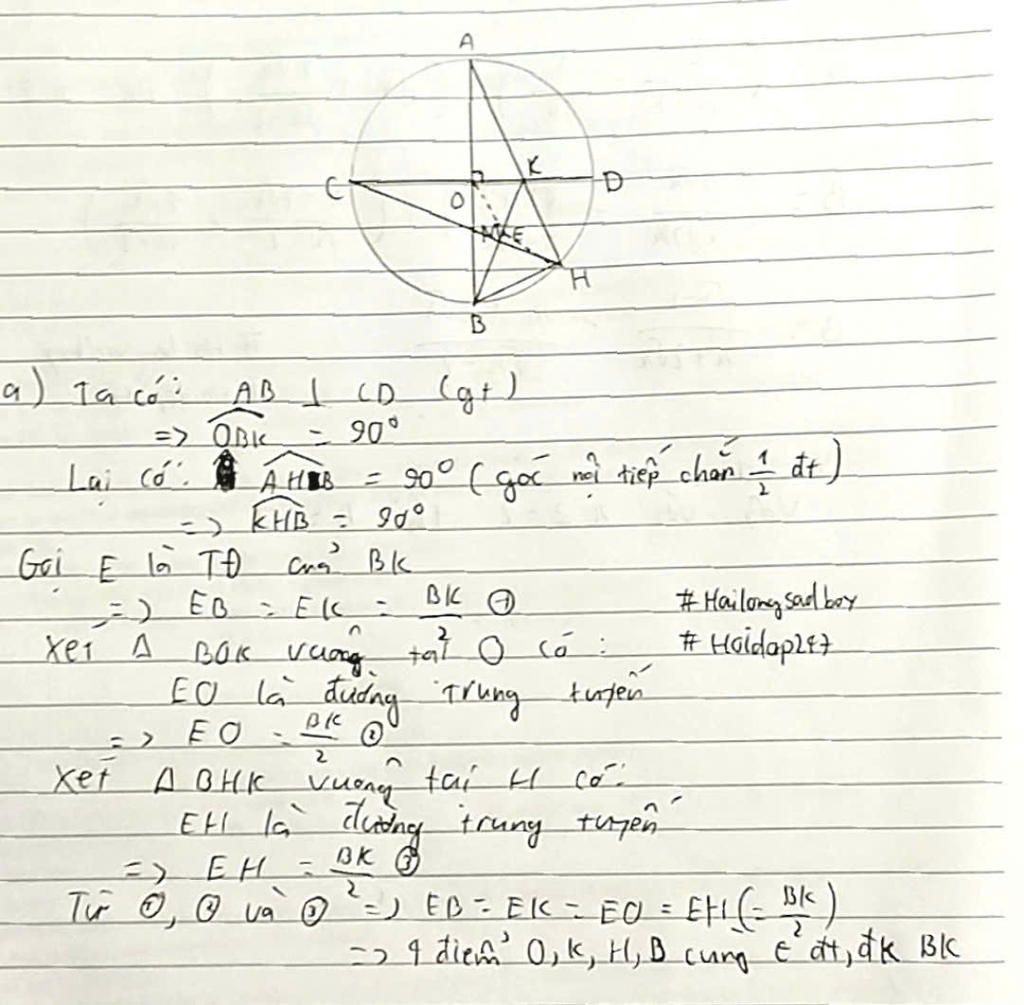 A
C
O
K
D
E
H
B
a) Ta có: AB ⊥ CD (gt)
=> \widehat{OBK} = 90°
Lại có: \widehat{AHB} = 90° (góc nội tiếp chắn \frac{1}{2} đt)
=> \widehat{KHB} = 90°
Gọi E là TĐ của BK
=> EB = EK = \frac{BK}{2} ①
#Hailongsadboy
Xét Δ BOK vuông tại O có:
#Hoidap247
EO là đường trung tuyến
=> EO = \frac{BK}{2} ②
Xét Δ BHK vuông tại H có:
EH là đường trung tuyến
=> EH = \frac{BK}{2} ③
Từ ①, ② và ③ => EB = EK = EO = EH (= \frac{BK}{2})
=> 4 điểm O, K, H, B cùng ∈ đt, đk BK